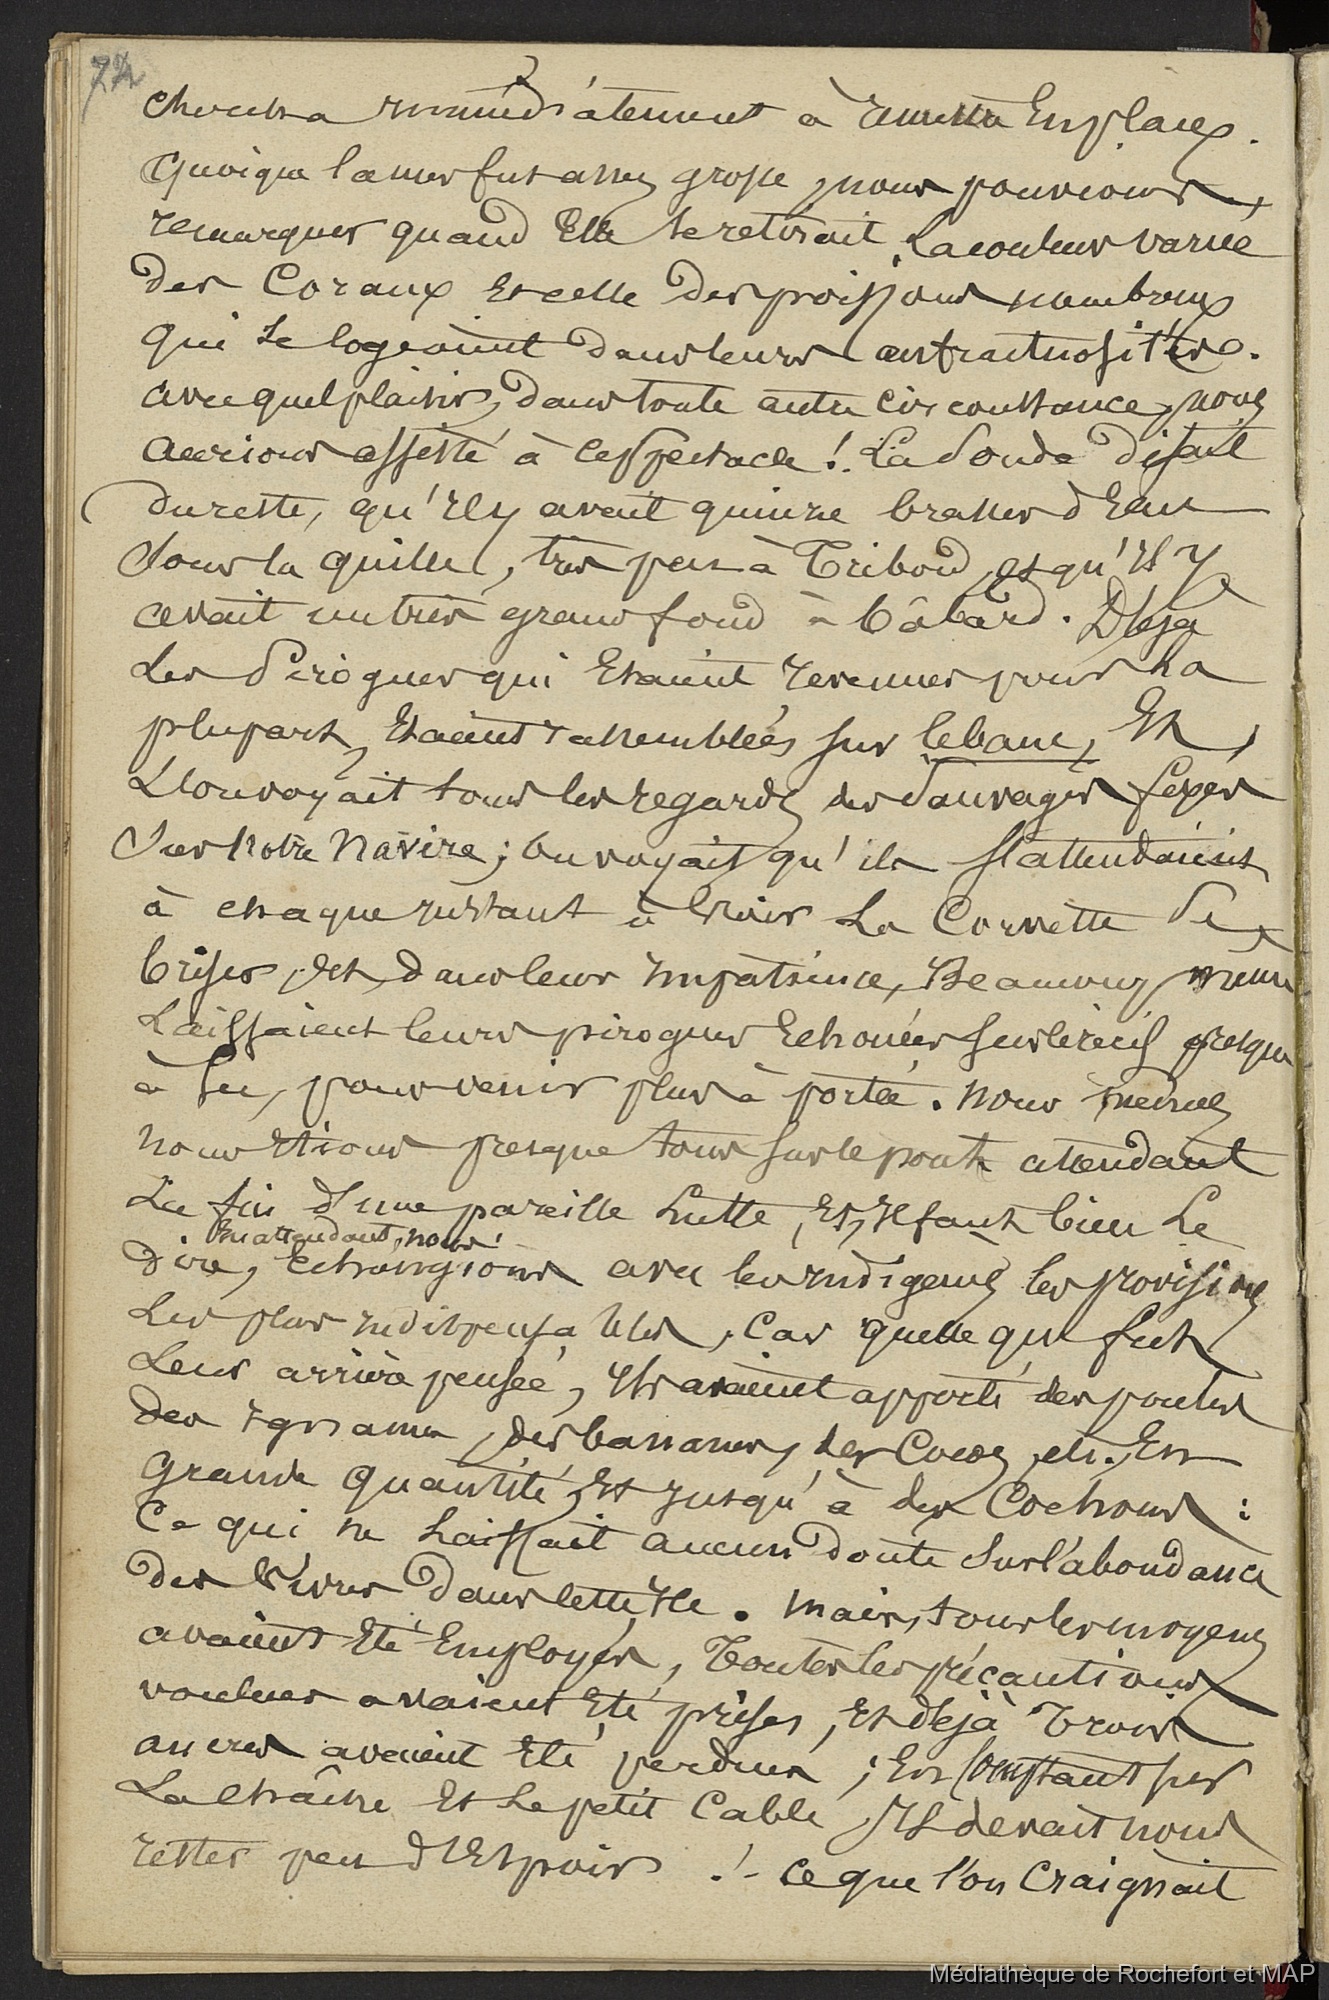 74
chercha immédiatement à remettre En place.
Quoique la mer fut assez grosse, nous pouvions,
remarquer quand Elle se retirait, La couleur variée
des Coraux Et celle des poissons nombreux
qui se logeaient dans leurs anfractuosités.
avec quel plaisir, dans toute autre circonstance, nous
aurions assisté à ce spectacle ! La Sonde disait
du reste, qu'il y avait quinze brasses d'Eau
Sous la quille, très peu à Tribord, Et qu'il y
avait un très grand fond à bâbord. Déja
Les Pirogues qui Etaient revenues pour La
plupart, Etaient rassemblées sur le banc, Et,
L'on voyait tous les regards des Sauvages fixés
Sur Notre Navire ; on voyait qu'ils s'attendaient
à chaque instant à voir La Corvette Se
briser, Et, dans leur impatience, Beaucoup même
Laissaient leurs pirogues Echouées sur le récif presque
à Sec, pour venir plus à portée. Nous mêmes
nous Etions presque tous sur le pont attendant
La fin d'une pareille Lutte, Et, Il faut bien Le
En attendant, nous
dire, Echangions avec les indigènes les provisions
Les plus indispensables, Car quelle que fut
Leur arrière pensée, Ils avaient apporté des poules
des ignames, des bananes, des Cocos, etc., En
Grande Quantité, Et jusqu'à des Cochons :
Ce qui ne Laissait aucun doute Sur l'abondance
des Vivres dans cette Ile. Mais, tous les moyens
avaient Eté Employés, Toutes les précautions
voulues avaient Eté prises, Et déjà Trois
ancres avaient Eté perdues ; En comptant sur
La chaîne Et Le petit Cable, Il devait nous
rester peu d'Espoir ! - Ce que l'on Craignait
Médiathèque de Rochefort et MAP